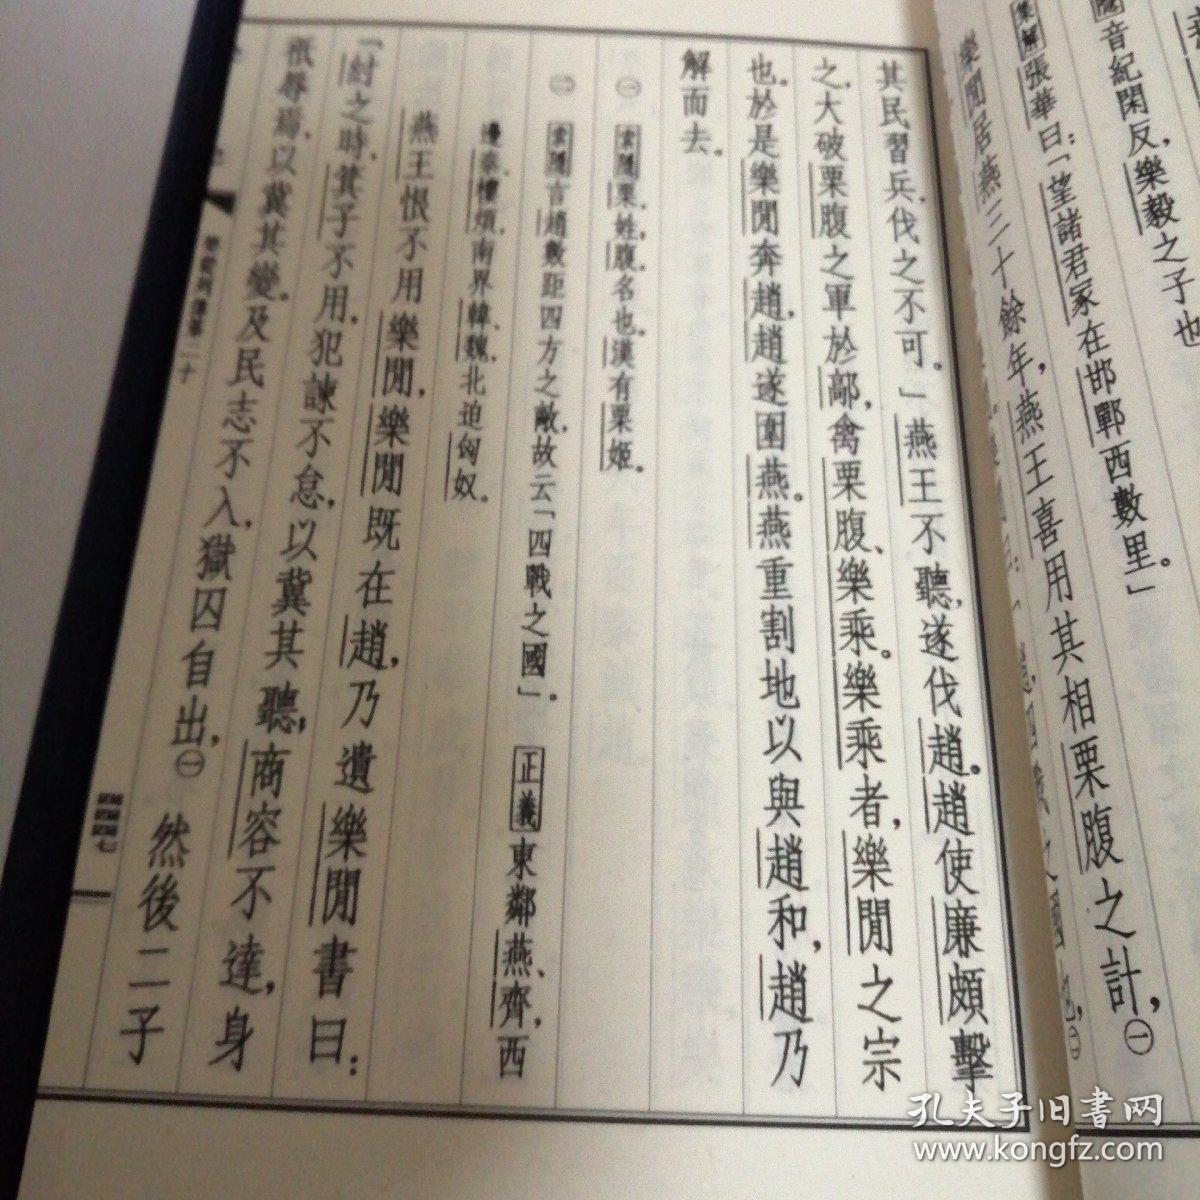 音紀閑反，樂毅之子也
集解張華曰：「望諸君冢在邯鄲西數里。」
樂閒居燕三十餘年，燕王喜用其相栗腹之計，㊀
其民習兵，伐之不可。」燕王不聽，遂伐趙。趙使廉頗擊
之，大破栗腹之軍於鄗，禽栗腹、樂乘。樂乘者，樂閒之宗
也。於是樂閒奔趙，趙遂圍燕。燕重割地以與趙和，趙乃
解而去。
㊀索隱栗，姓，腹，名也。漢有栗姬。
㊁索隱言趙數距四方之敵，故云「四戰之國」。正義東鄰燕、齊，西
邊秦、樓煩，南界韓、魏，北迫匈奴。
燕王恨不用樂閒，樂閒既在趙，乃遺樂閒書曰：
「紂之時，箕子不用，犯諫不怠，以冀其聽；商容不達，身
祇辱焉，以冀其變。及民志不入，獄囚自出，㊀然後二子
樂毅列傳第二十
四四四七
孔夫子旧書网
www.kongfz.com